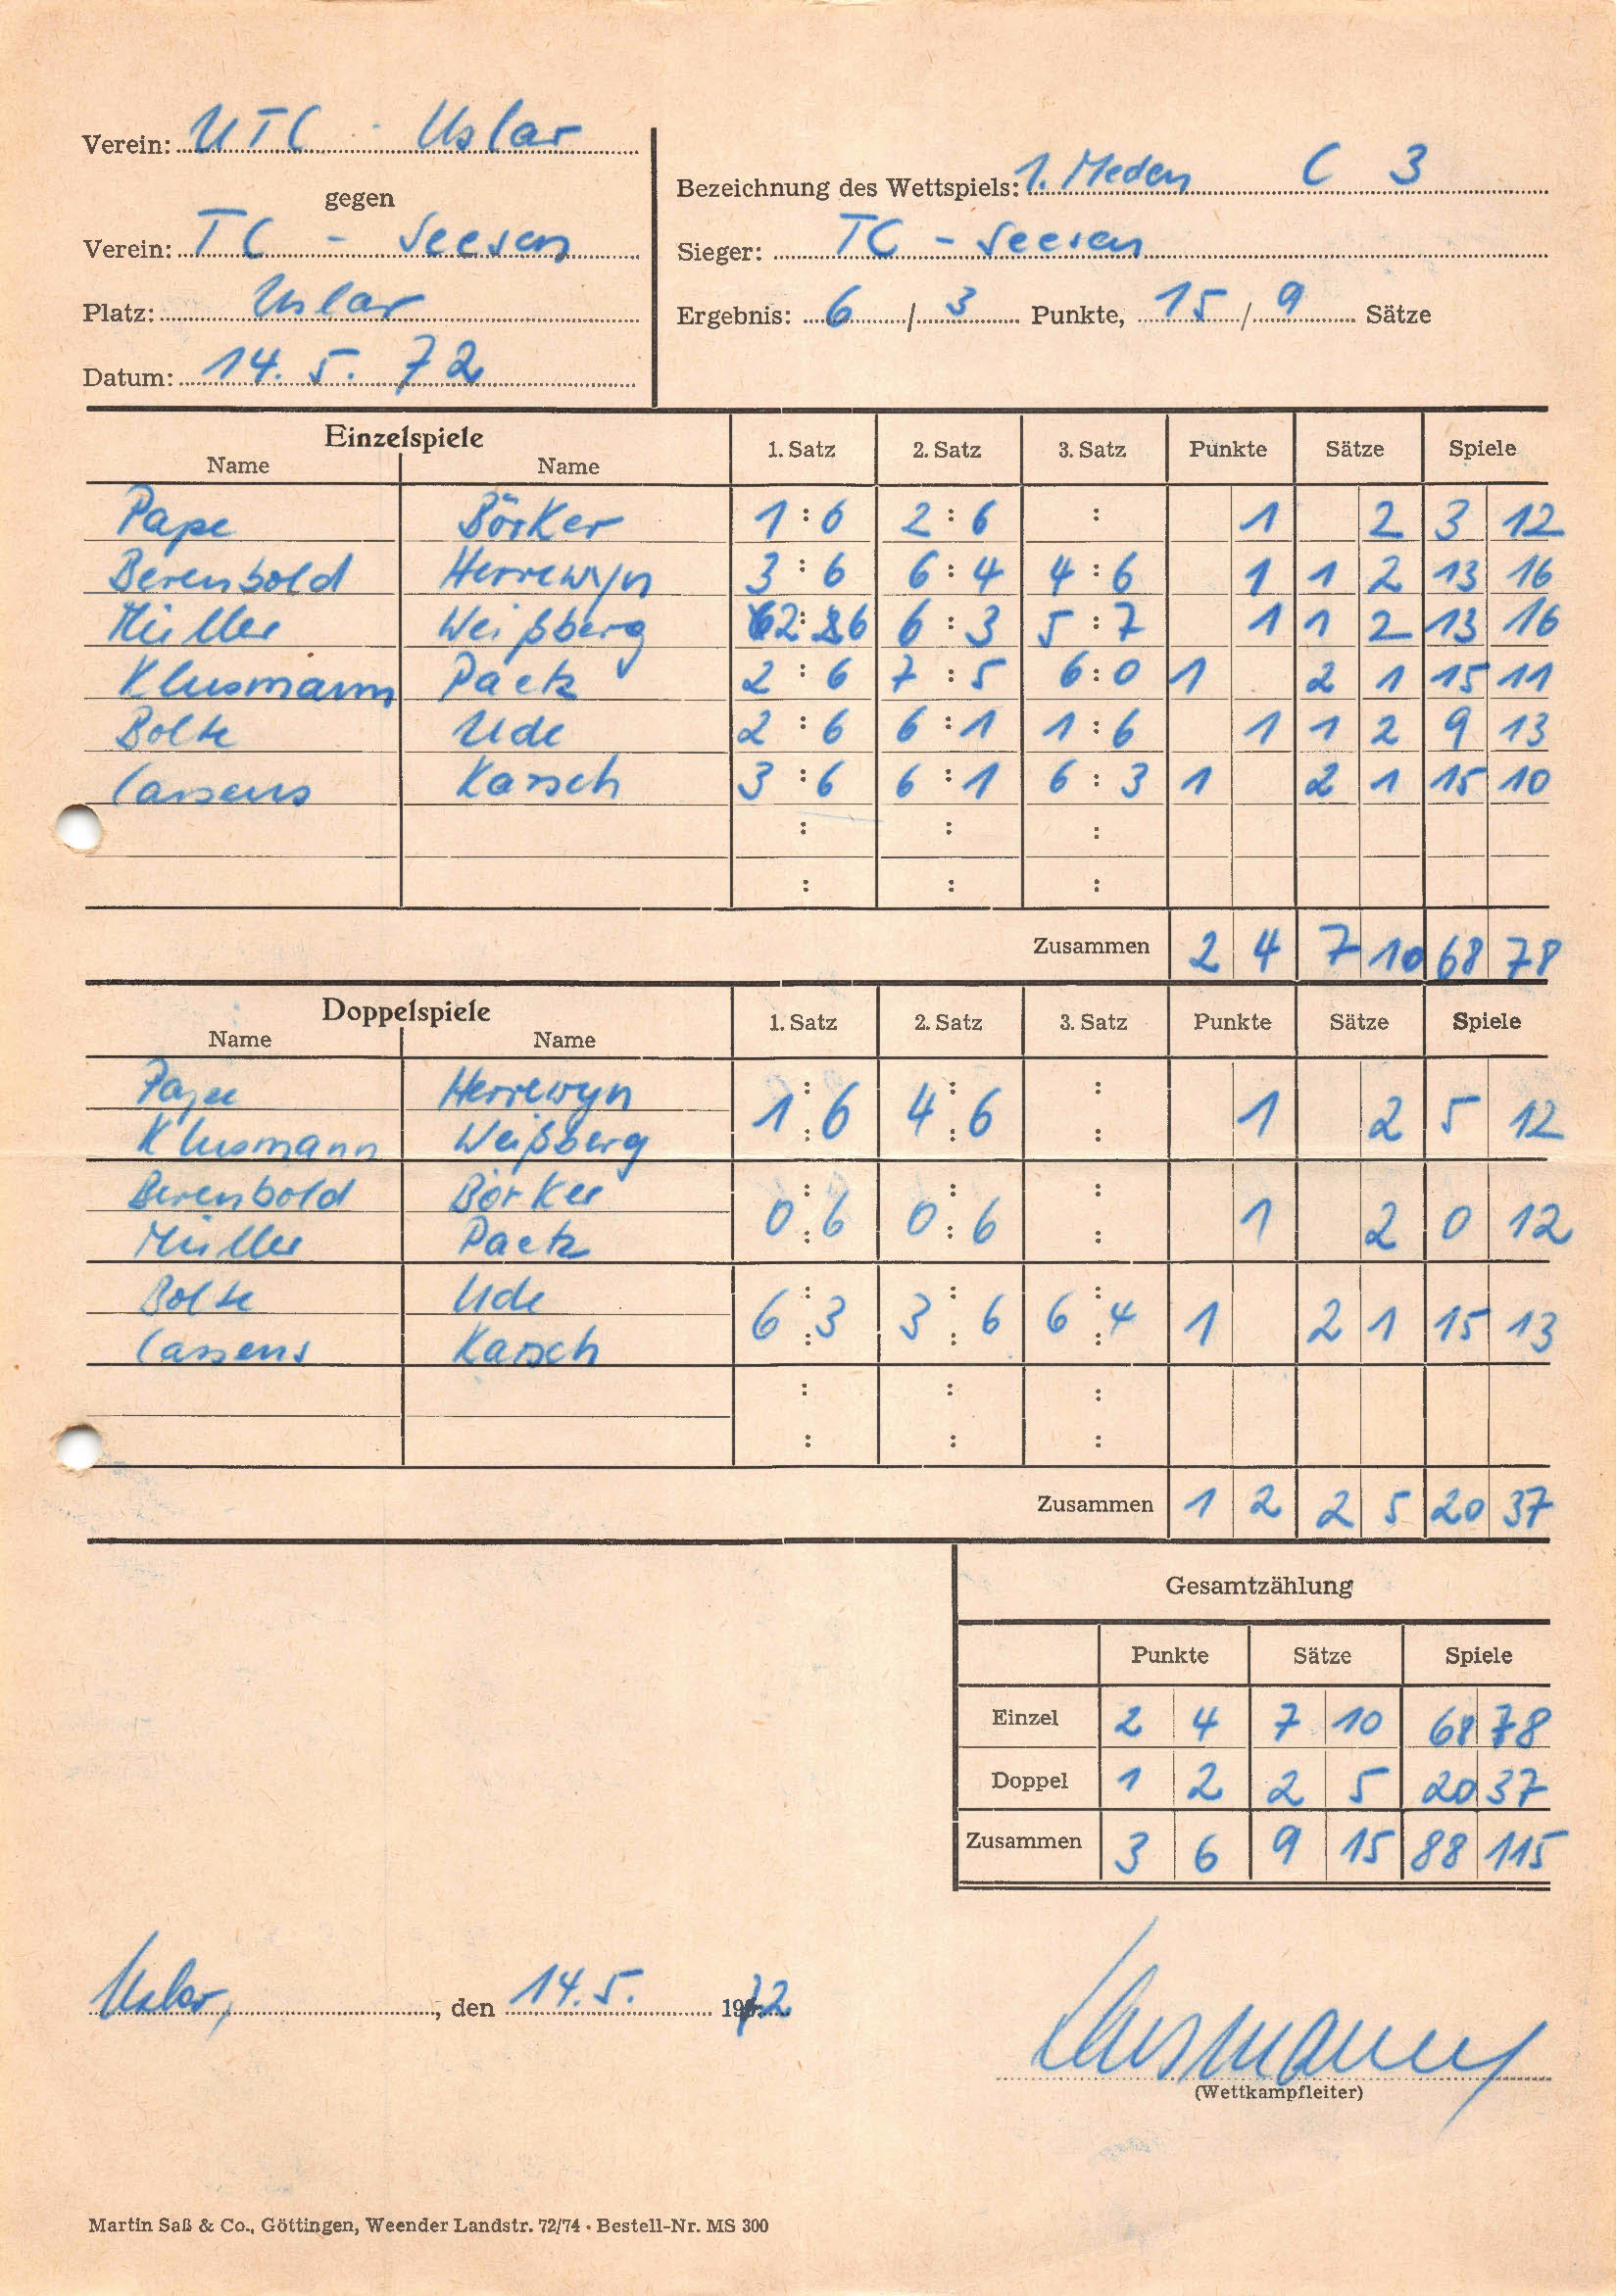 Verein: UTC - Uslar
gegen
Verein: TC - Seesen
Platz: Uslar
Datum: 14. 5. 72
Bezeichnung des Wettspiels: 1. Meden C 3
Sieger: TC - Seesen
Ergebnis: 6 / 3 Punkte, 15 / 9 Sätze
Einzelspiele
Name Name 1. Satz 2. Satz 3. Satz Punkte Sätze Spiele
Pape Börker 1 : 6 2 : 6 : 1 2 3 12
Berenbold Herrewyn 3 : 6 6 : 4 4 : 6 1 1 2 13 16
Müller Weißberg 2 : 6 6 : 3 5 : 7 1 1 2 13 16
Klusmann Paetz 2 : 6 7 : 5 6 : 0 1 2 1 15 11
Bolte Ude 2 : 6 6 : 1 1 : 6 1 1 2 9 13
Cassens Karsch 3 : 6 6 : 1 6 : 3 1 2 1 15 10
: : :
: : :
Zusammen 2 4 7 10 68 78
Doppelspiele
Name Name 1. Satz 2. Satz 3. Satz Punkte Sätze Spiele
Pape Herrewyn 1 : 6 4 : 6 : 1 2 5 12
Klusmann Weißberg
Berenbold Börker 0 : 6 0 : 6 : 1 2 0 12
Müller Paetz
Bolte Ude 6 : 3 3 : 6 6 : 4 1 2 1 15 13
Cassens Karsch
: : :
: : :
Zusammen 1 2 2 5 20 37
Gesamtzählung
Punkte Sätze Spiele
Einzel 2 4 7 10 68 78
Doppel 1 2 2 5 20 37
Zusammen 3 6 9 15 88 115
Uslar, , den 14. 5. 1972
Klusmann
(Wettkampfleiter)
Martin Saß & Co., Göttingen, Weender Landstr. 72/74 · Bestell-Nr. MS 300